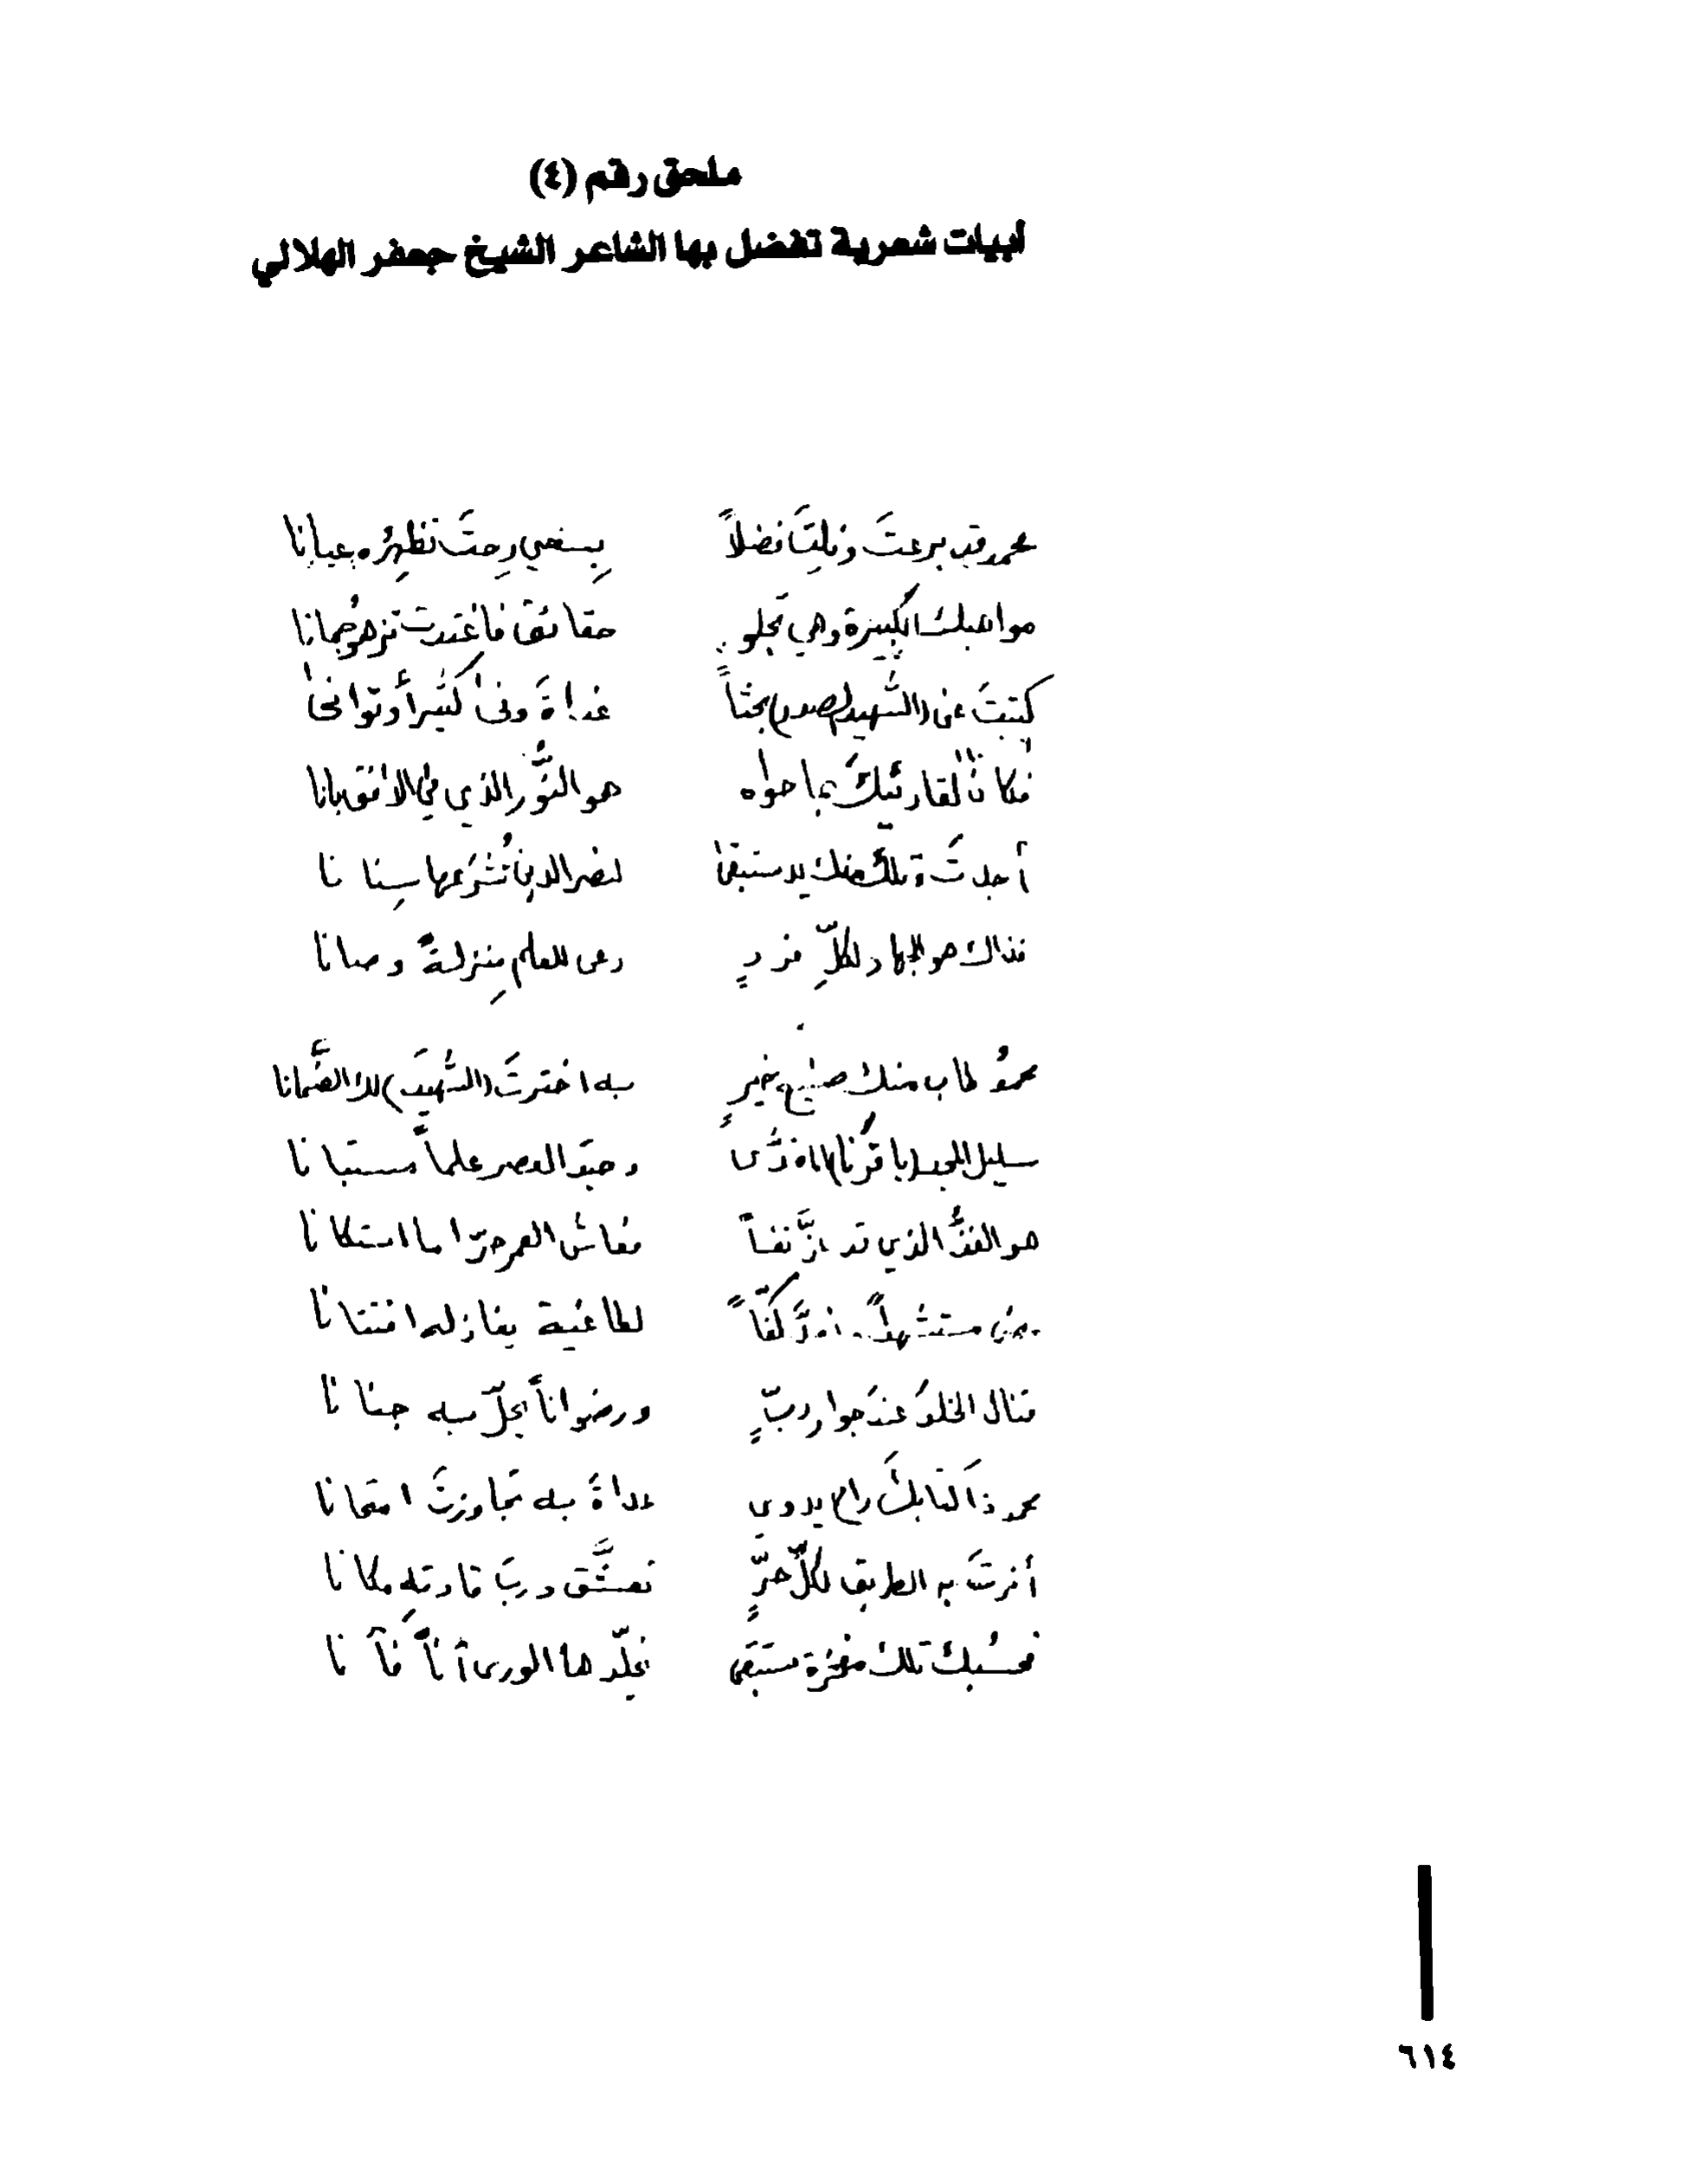 ملحق رقم (٤)
أبيات شعرية تفضل بها الشاعر الشيخ جعفر الهلالي
محمد قد برعتَ ونلتَ فضلاً بِسعيٍ رحتَ تظهِرُه عيانا
مواهبك الكبيرة وهي تجلو حقائق فاغتدت تزهو جُمانا
كتبتَ عن (الشهيد الصدر) بحثاً غداةَ ونى كثيراً وتوانى
فكان لقارئيكَ بما حواه هو النُّور الذي في الأفق بانا
أجدتَ تلك منك يد ستبقى لنصر الدين تُشرعها سِنانا
فذاك هو الجهاد لكلِّ فردٍ رعى للعلم مِنزلةً وصانا
محمدُ طاب منك صنيع خيرٍ به اخترتَ (الشهيدَ) لك الضَّمانا
سليل المجد باقرُنا المفدَّى وحيدَ العصر علماً مستبانا
هو الفذُّ الذي قد عزَّ نفساً فعاش العمر حرّا ما استكانا
مستشهداً مدَّ كفّاً لطاغية افتتانا
فنال الخلدَ عندَ جوار ربٍّ ورضواناً يحلّ به جنانا
محمد ذا كتابكَ رام يدوي غداةَ به تجاوزتَ امتحانا
أنرتَ به الطريق لكلِّ حرٍّ تعشَّق دربَ قادته مكانا
فحسبُك تلك مفخرة ستبقى يخلّدها الورى آناً فآنا
٦١٤